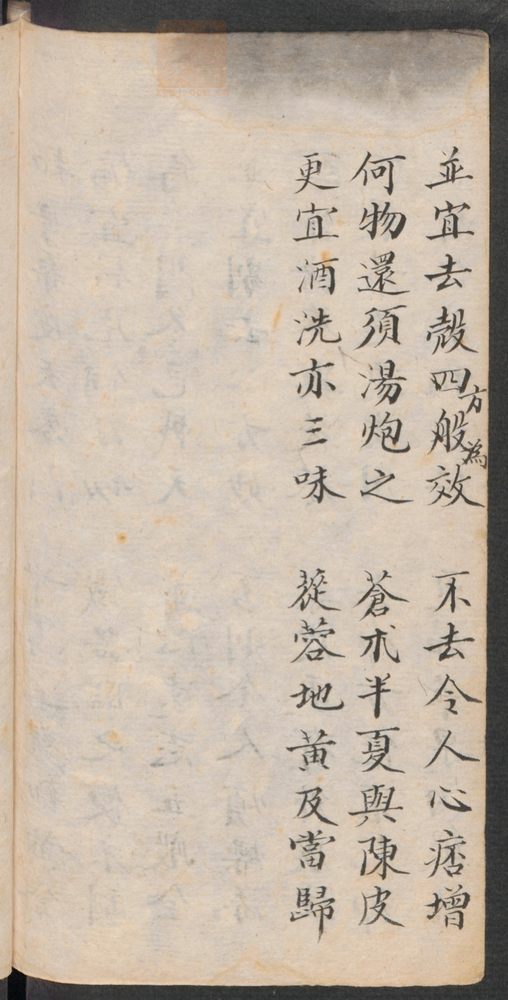 並宜去殼四般效　不去令人心痞增
方為
何物還須湯炮之　蒼朮半夏與陳皮
更宜酒洗亦三味　蓯蓉地黃及當歸